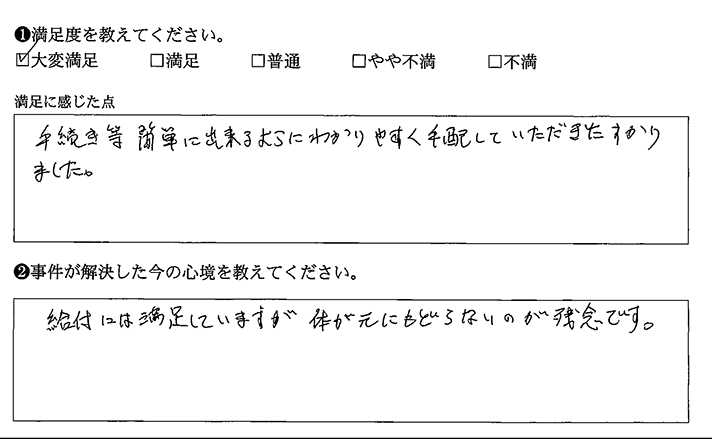 ❶満足度を教えてください。
☑大変満足 □満足 □普通 □やや不満 □不満
満足に感じた点
手続き等 簡単に出来るようにわかりやすく手配していただきたすかり
ました。
❷事件が解決した今の心境を教えてください。
給付には満足していますが 体が元にもどらないのが残念です。